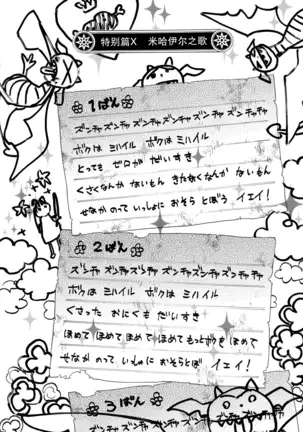 特别篇X 米哈伊尔之歌
1ばん
ズンチャ ズンチャ ズンチャズンチャ ズンチャ ズンチャ ズンチャ
ボクは ミハイル ボクは ミハイル
とっても ゼロが だいすき
くさくなんか ないもん きたなくなんか ないもん
せなか のって いっしょに おそら とぼう イエイ!
2ばん
ズンチャ ズンチャ ズンチャ ズンチャズンチャズンチャ ズンチャ
ボクは ミハイル ボクは ミハイル
くさった おにくも だいすき
ほめて ほめて ほめて ほめて もっとボクを ほめて
せなか のって いっしょに おそらとぼ イエイ!
3ばん
ズンチャ ズンチャ